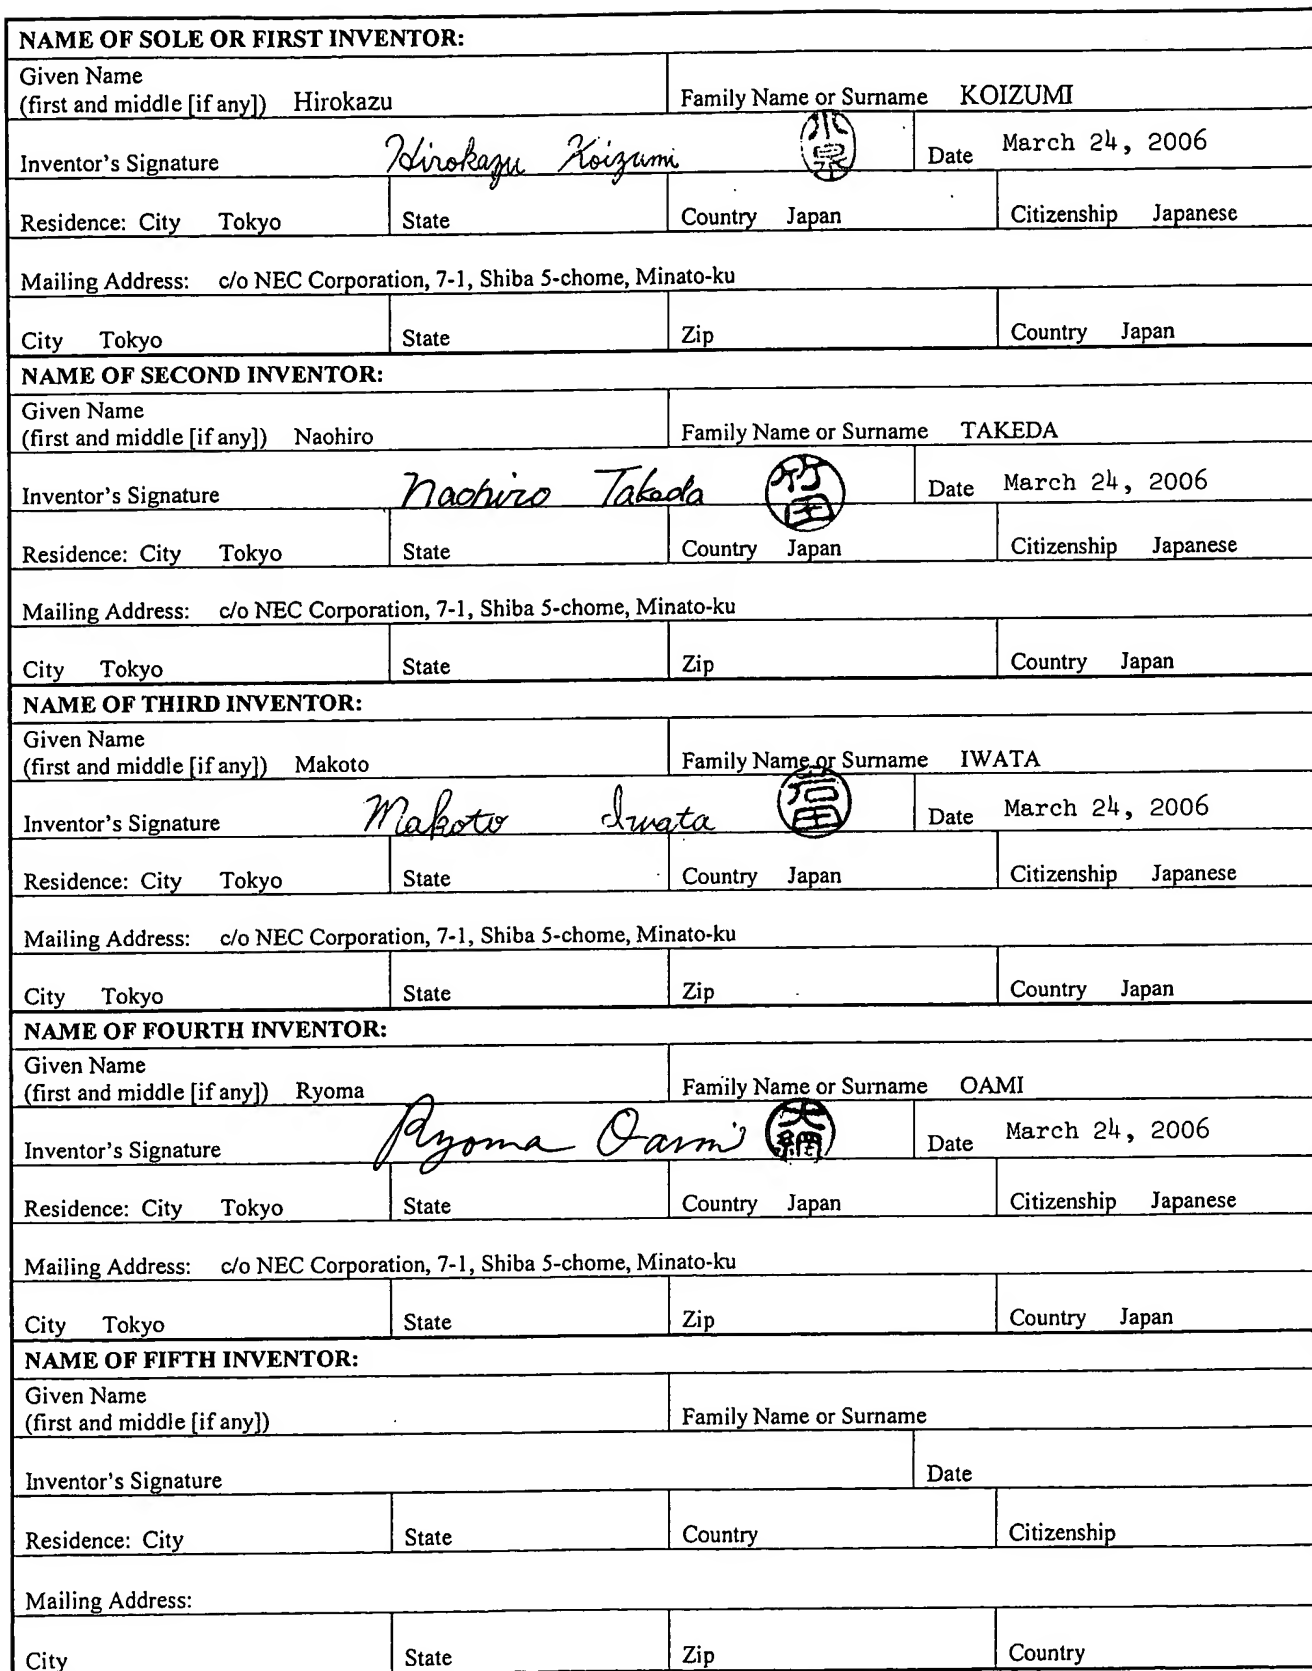 NAME OF SOLE OR FIRST INVENTOR:
Given Name
(first and middle [if any]) Hirokazu Family Name or Surname KOIZUMI
Inventor's Signature Hirokazu Koizumi 小泉 Date March 24, 2006
Residence: City Tokyo State Country Japan Citizenship Japanese
Mailing Address: c/o NEC Corporation, 7-1, Shiba 5-chome, Minato-ku
City Tokyo State Zip Country Japan
NAME OF SECOND INVENTOR:
Given Name
(first and middle [if any]) Naohiro Family Name or Surname TAKEDA
Inventor's Signature Naohiro Takeda 竹田 Date March 24, 2006
Residence: City Tokyo State Country Japan Citizenship Japanese
Mailing Address: c/o NEC Corporation, 7-1, Shiba 5-chome, Minato-ku
City Tokyo State Zip Country Japan
NAME OF THIRD INVENTOR:
Given Name
(first and middle [if any]) Makoto Family Name or Surname IWATA
Inventor's Signature Makoto Iwata 岩田 Date March 24, 2006
Residence: City Tokyo State Country Japan Citizenship Japanese
Mailing Address: c/o NEC Corporation, 7-1, Shiba 5-chome, Minato-ku
City Tokyo State Zip Country Japan
NAME OF FOURTH INVENTOR:
Given Name
(first and middle [if any]) Ryoma Family Name or Surname OAMI
Inventor's Signature Ryoma Oami 大網 Date March 24, 2006
Residence: City Tokyo State Country Japan Citizenship Japanese
Mailing Address: c/o NEC Corporation, 7-1, Shiba 5-chome, Minato-ku
City Tokyo State Zip Country Japan
NAME OF FIFTH INVENTOR:
Given Name
(first and middle [if any]) Family Name or Surname
Inventor's Signature Date
Residence: City State Country Citizenship
Mailing Address:
City State Zip Country